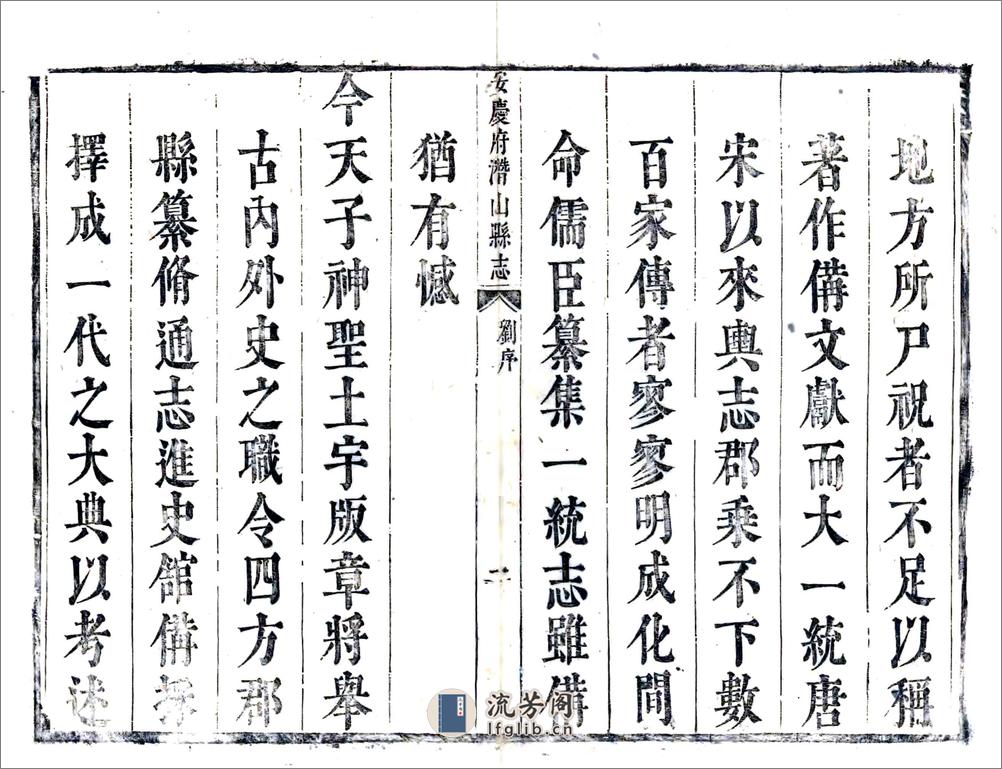 地方所尸祝者不足以稱
著作備文獻而大一統唐
宋以來輿志郡乘不下數
百家傳者寥寥明成化間
命儒臣纂集一統志雖備
猶有憾
安慶府潛山縣志
劉序
二
今天子神聖土宇版章將舉
古內外史之職令四方郡
縣纂脩通志進史舘備採
擇成一代之大典以考述
流芳阁
lfglib.cn